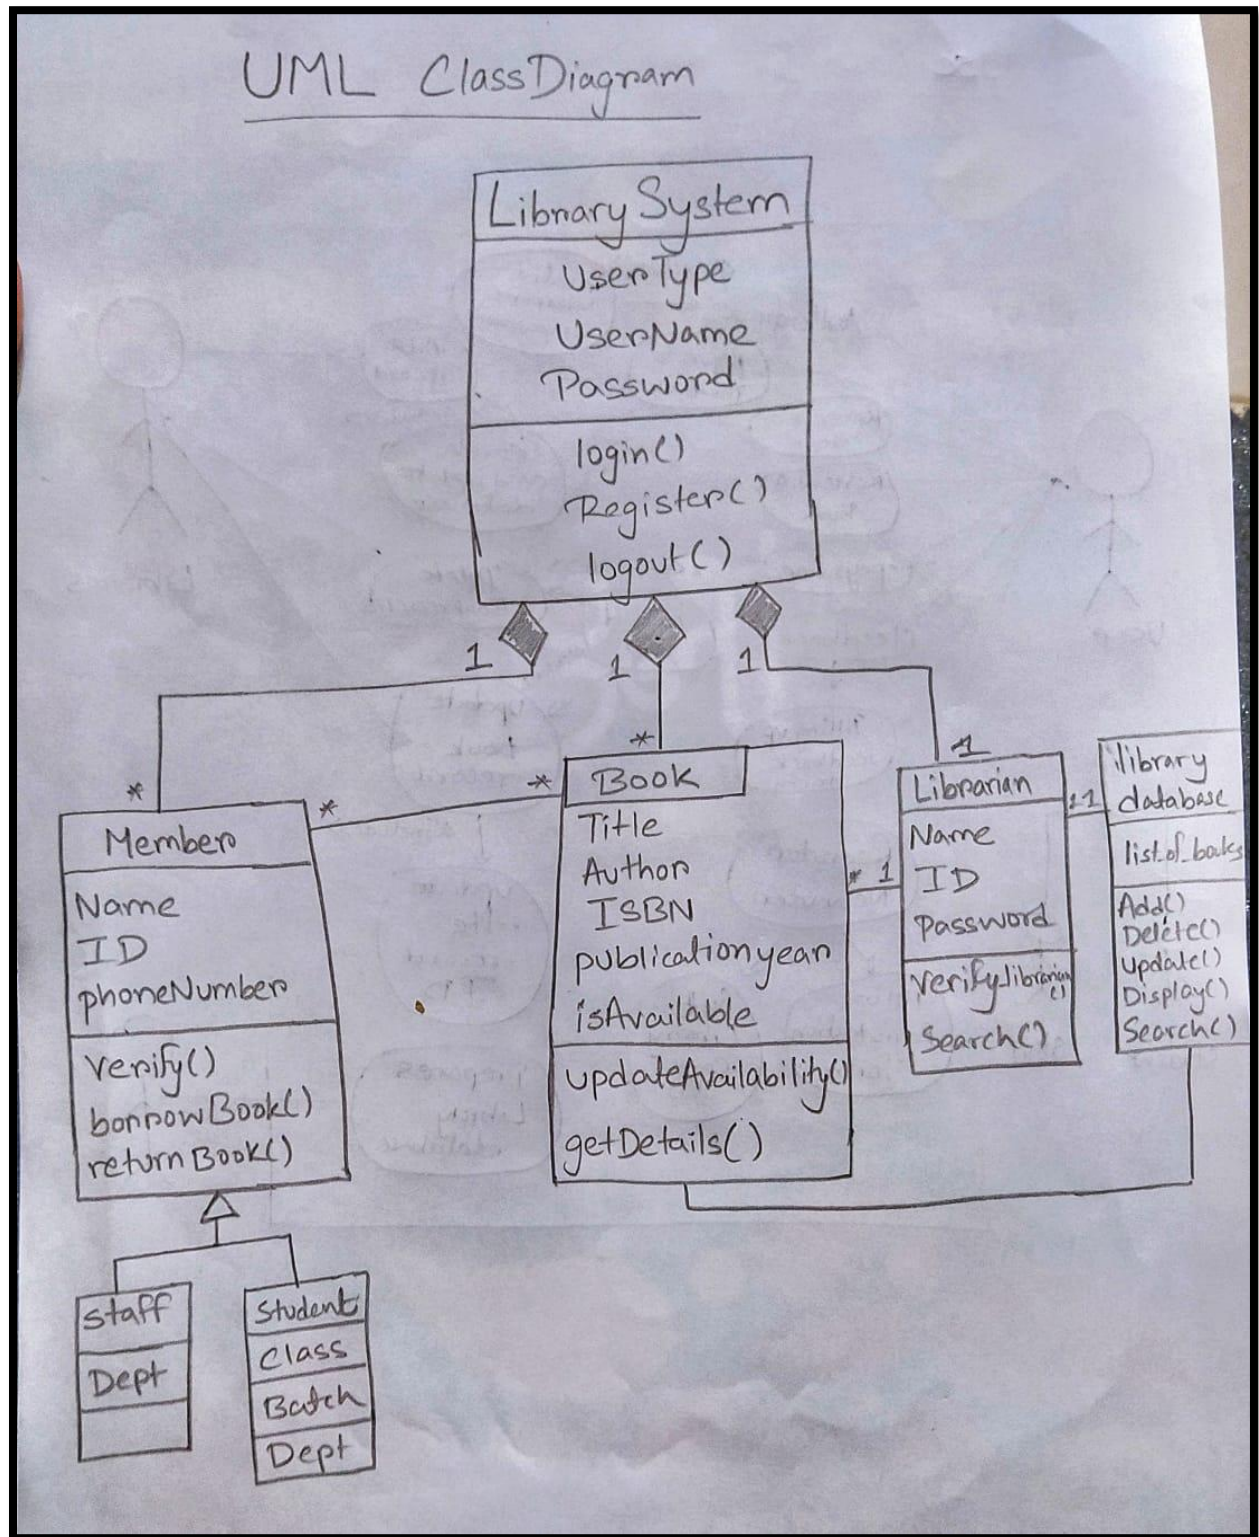 UML ClassDiagram
LibrarySystem
UserType
UserName
Password
login()
Register()
logout()
1
1
1
*
*
1
Member
Name
ID
phoneNumber
Verify()
borrowBook()
returnBook()
*
*
Book
Title
Author
ISBN
publicationyear
isAvailable
updateAvailability()
getDetails()
*
1
Librarian
Name
ID
Password
Verifylibrarian
()
Search()
1
1
library
database
list_of_books
Add()
Delete()
update()
Display()
Search()
staff
Dept
Student
Class
Batch
Dept